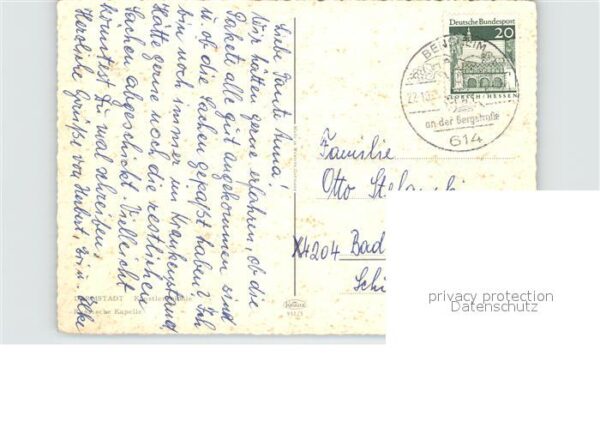 Liebe Tante Anna!
Wir hätten gerne erfahren, ob die
Pakete alle gut angekommen sind
u. ob die Sachen gepaßt haben? Ich
bin noch immer im Krankenstand,
hätte gerne noch die restlichen
Sachen abgeschickt. Vielleicht
könntest Du mal schreiben.
Herzliche Grüße von Herbert,
Künstlerkolonie
Kapelle
Deutsche Bundespost
20
LORSCH · HESSEN
BENSHEIM
an der Bergstraße
614
Familie
Otto
4204 Bad
Schi
privacy protection
Datenschutz